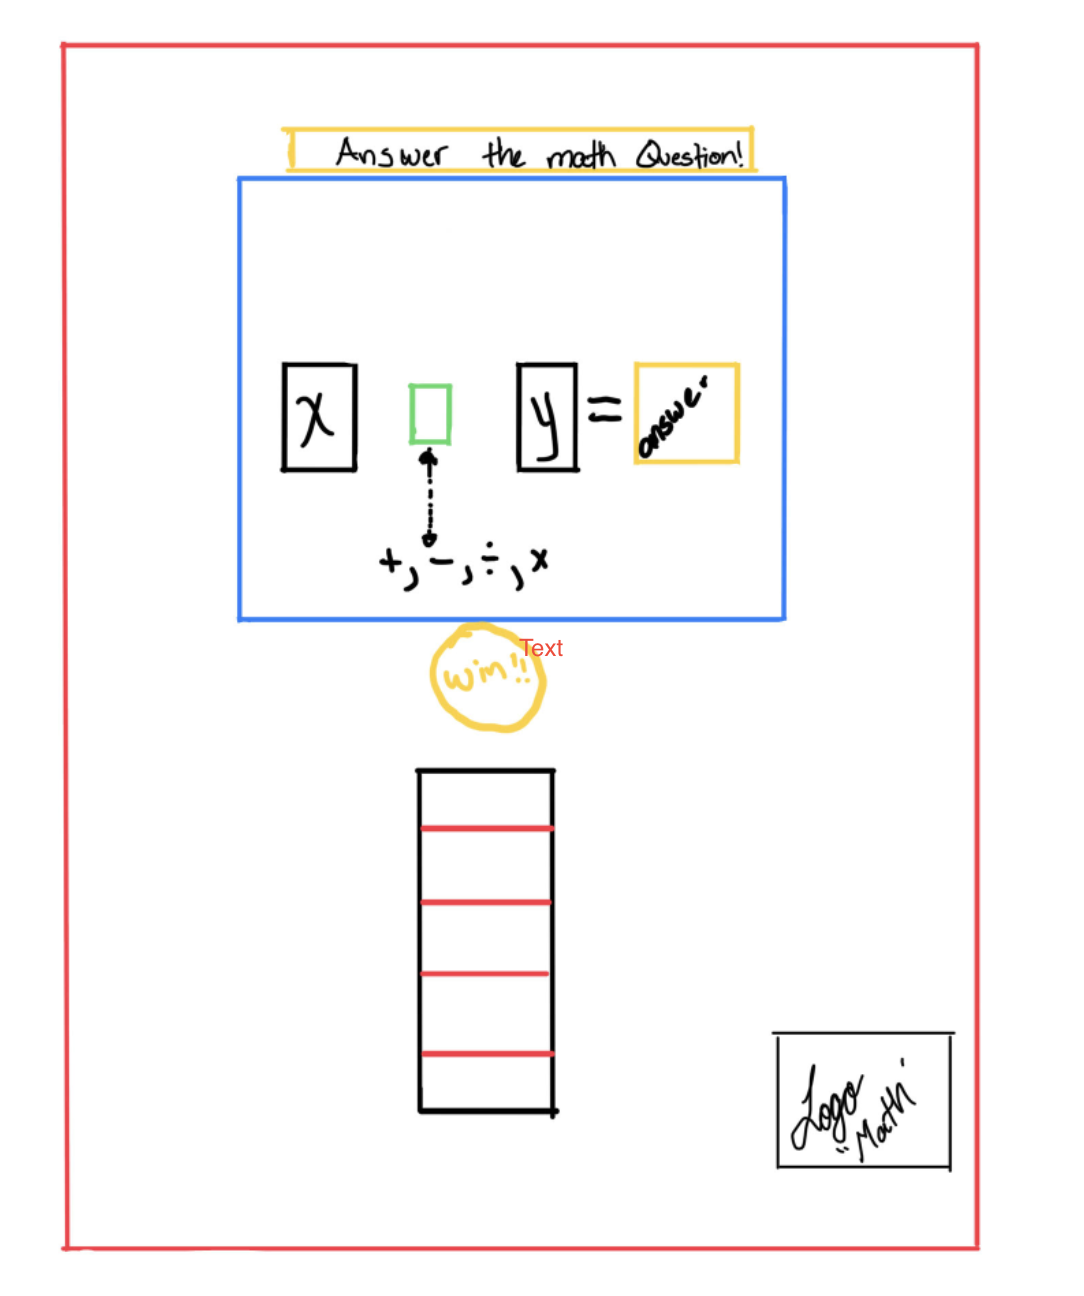 Answer the math Question!
x y = answer
+, -, ÷, x
Text
win!!
Logo
"Math"